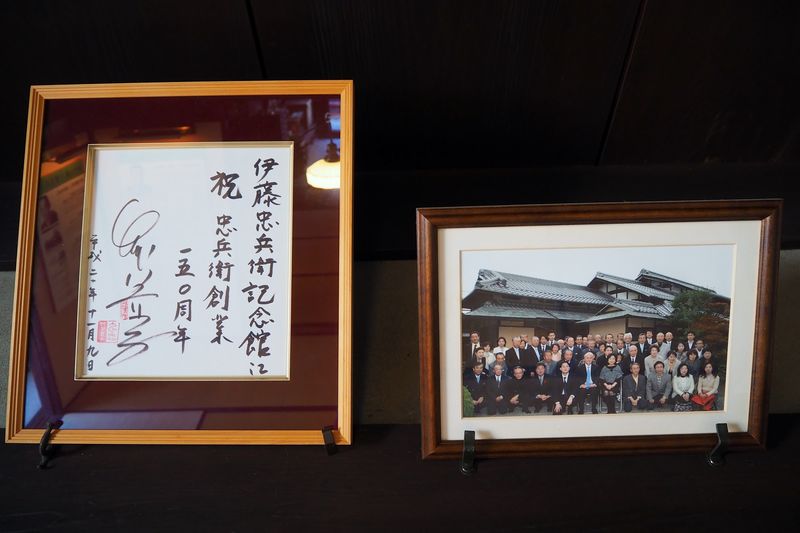 伊藤忠兵衛記念館に
祝 忠兵衛創業
一五〇周年
平成二一年十一月九日